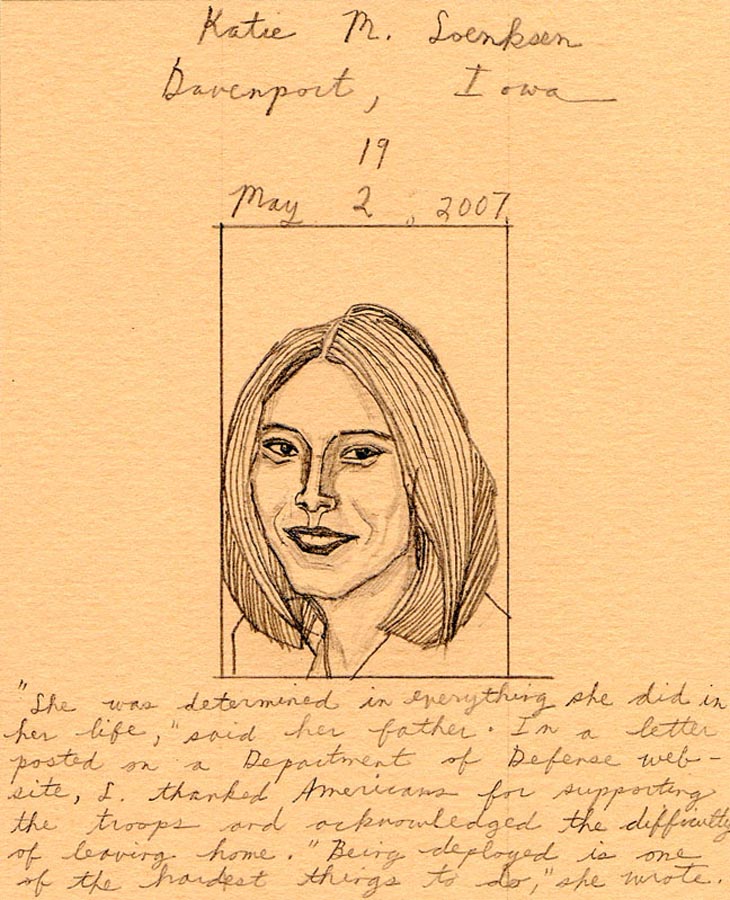 Katie M. Soenksen
Davenport, Iowa
19
May 2, 2007
"She was determined in everything she did in
her life," said her father. In a letter
posted on a Department of Defense web-
site, S. thanked Americans for supporting
the troops and acknowledged the difficulty
of leaving home. "Being deployed is one
of the hardest things to do," she wrote.